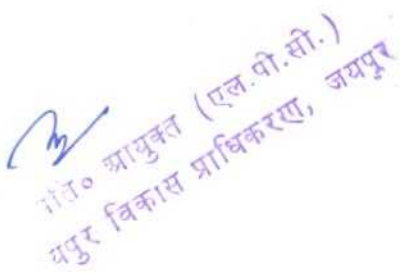 आयुक्त (एल.पी.सी.)
यपुर विकास प्राधिकरण, जयपुर